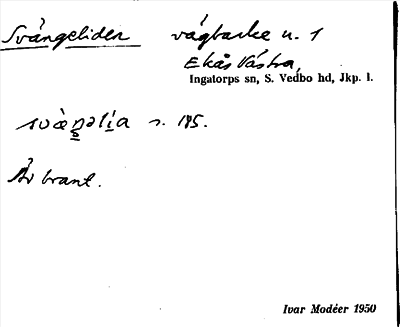 Svängeliden vägbacke n. 1
Ekås Västra,
Ingatorps sn, S. Vedbo hd, Jkp. l.
s. 185.
Är brant.
Ivar Modéer 1950